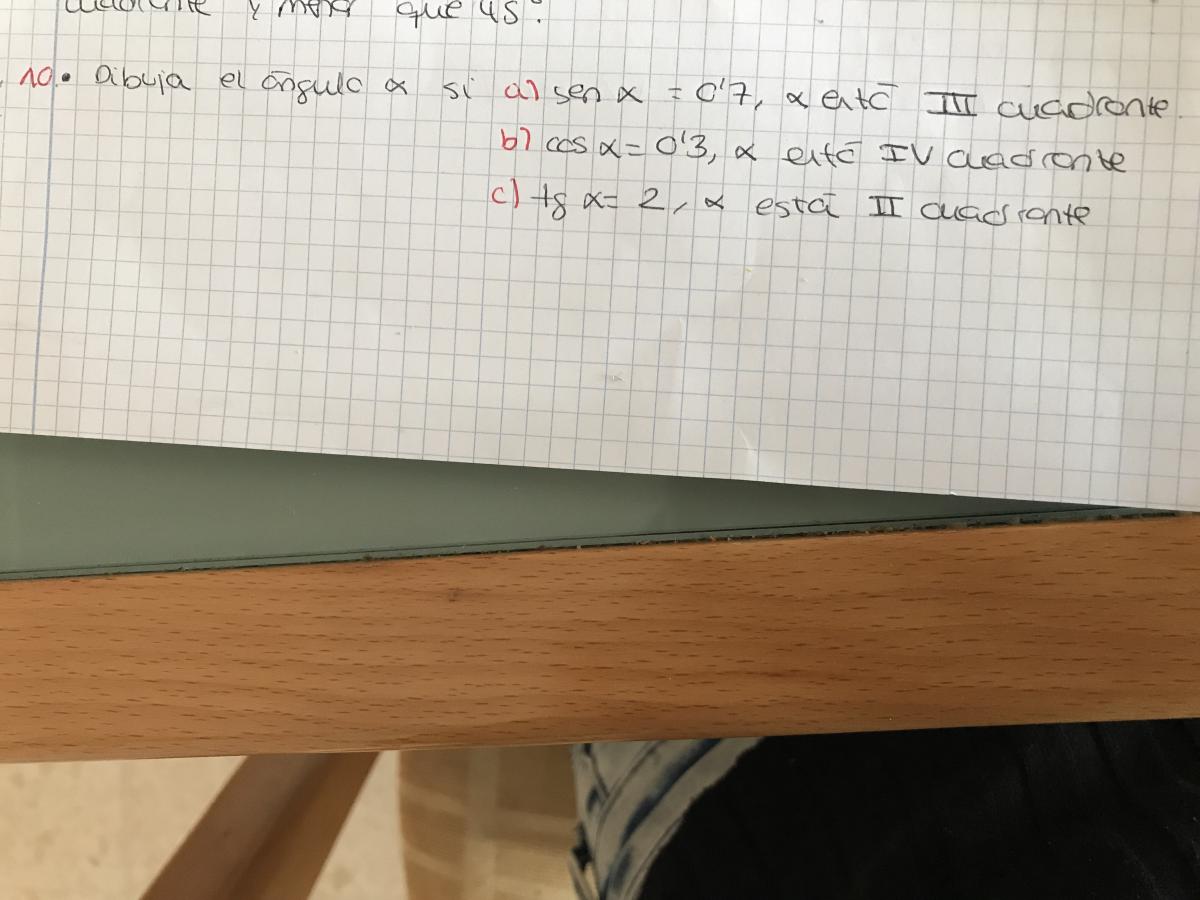 cuadrante y menor que 45°.
10. Dibuja el ángulo α si a) sen α = 0'7, α está III cuadrante.
b) cos α = 0'3, α está IV cuadrante
c) tg α = 2, α está II cuadrante